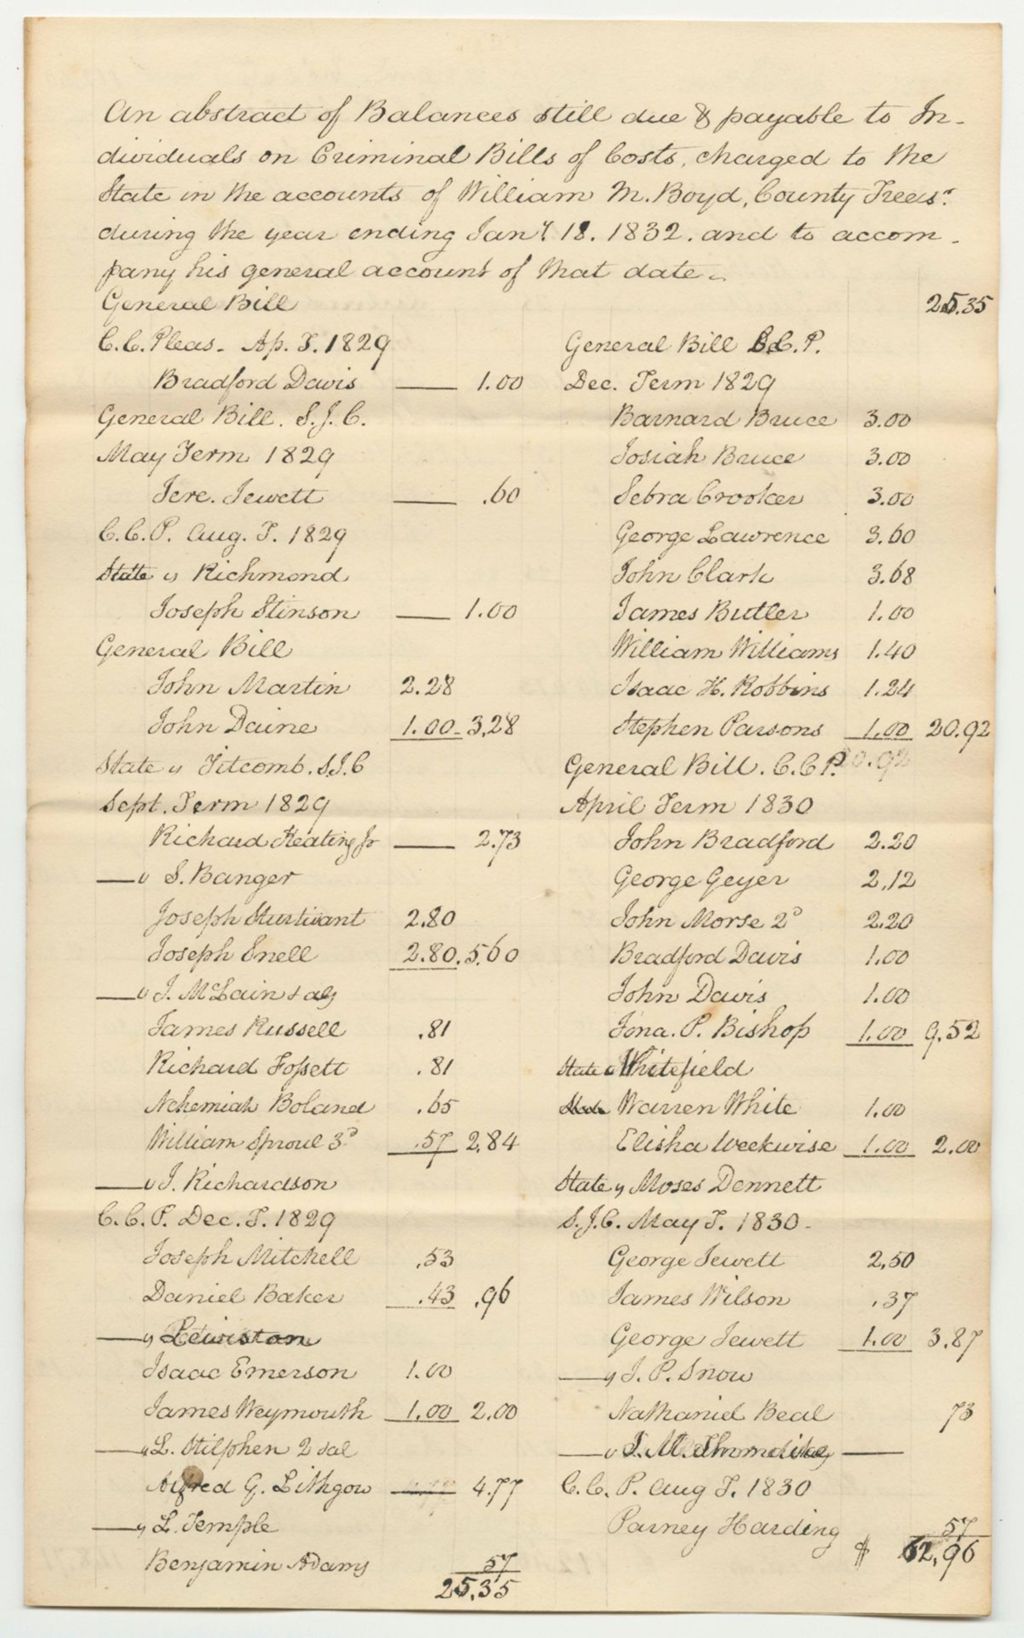 An abstract of Balances still due & payable to In-
dividuals on Criminal Bills of Costs, charged to the
State in the accounts of William M. Boyd, County Treasr.
during the year ending Jany 18. 1832. and to accom-
pany his general account of that date.
General Bill
C.C. Pleas. Ap. T. 1829
Bradford Davis 1.00
General Bill. S.J.C.
May Term 1829
Jere. Jewett .60
C.C.P. Aug. T. 1829
State vs Richmond
Joseph Stinson 1.00
General Bill
John Martin 2.28
John Daine 1.00 3.28
State vs Titcomb. S.J.C
Sept. Term 1829
Richard Keating Jr 2.73
—v S. Banger
Joseph Sturtivant 2.80
Joseph Snell 2.80 5.60
—v J. McLain & als
James Russell .81
Richard Fossett .81
Nehemiah Boland .65
William Sproul 3d .57 2.84
—v J. Richardson
C.C.P. Dec. T. 1829
Joseph Mitchell .53
Daniel Baker .43 .96
—v Lewiston
Isaac Emerson 1.00
James Weymouth 1.00 2.00
—v L. Stilphen 2 &al
Alfred G. Lithgow 4.77
—v L. Temple
Benjamin Adams 57
25.35
25.35
General Bill C.C.P.
Dec. Term 1829
Barnard Bruce 3.00
Josiah Bruce 3.00
Sebra Crooker 3.00
George Lawrence 3.60
John Clark 3.68
James Butler 1.00
William Williams 1.40
Isaac H. Robbins 1.24
Stephen Parsons 1.00 20.92
General Bill. C.C.P. 20.92
April Term 1830
John Bradford 2.20
George Geyer 2.12
John Morse 2d 2.20
Bradford Davis 1.00
John Davis 1.00
Jona. P. Bishop 1.00 9.52
State v Whitefield
State Warren White 1.00
Elisha Weekwise 1.00 2.00
State vs Moses Dennett
S.J.C. May T. 1830
George Jewett 2.50
James Wilson .37
George Jewett 1.00 3.87
—vs J. P. Snow
Nathaniel Beal 73
—v J. M. Thorndike
C.C.P. Aug T. 1830
Parney Harding 57
$ 62.96